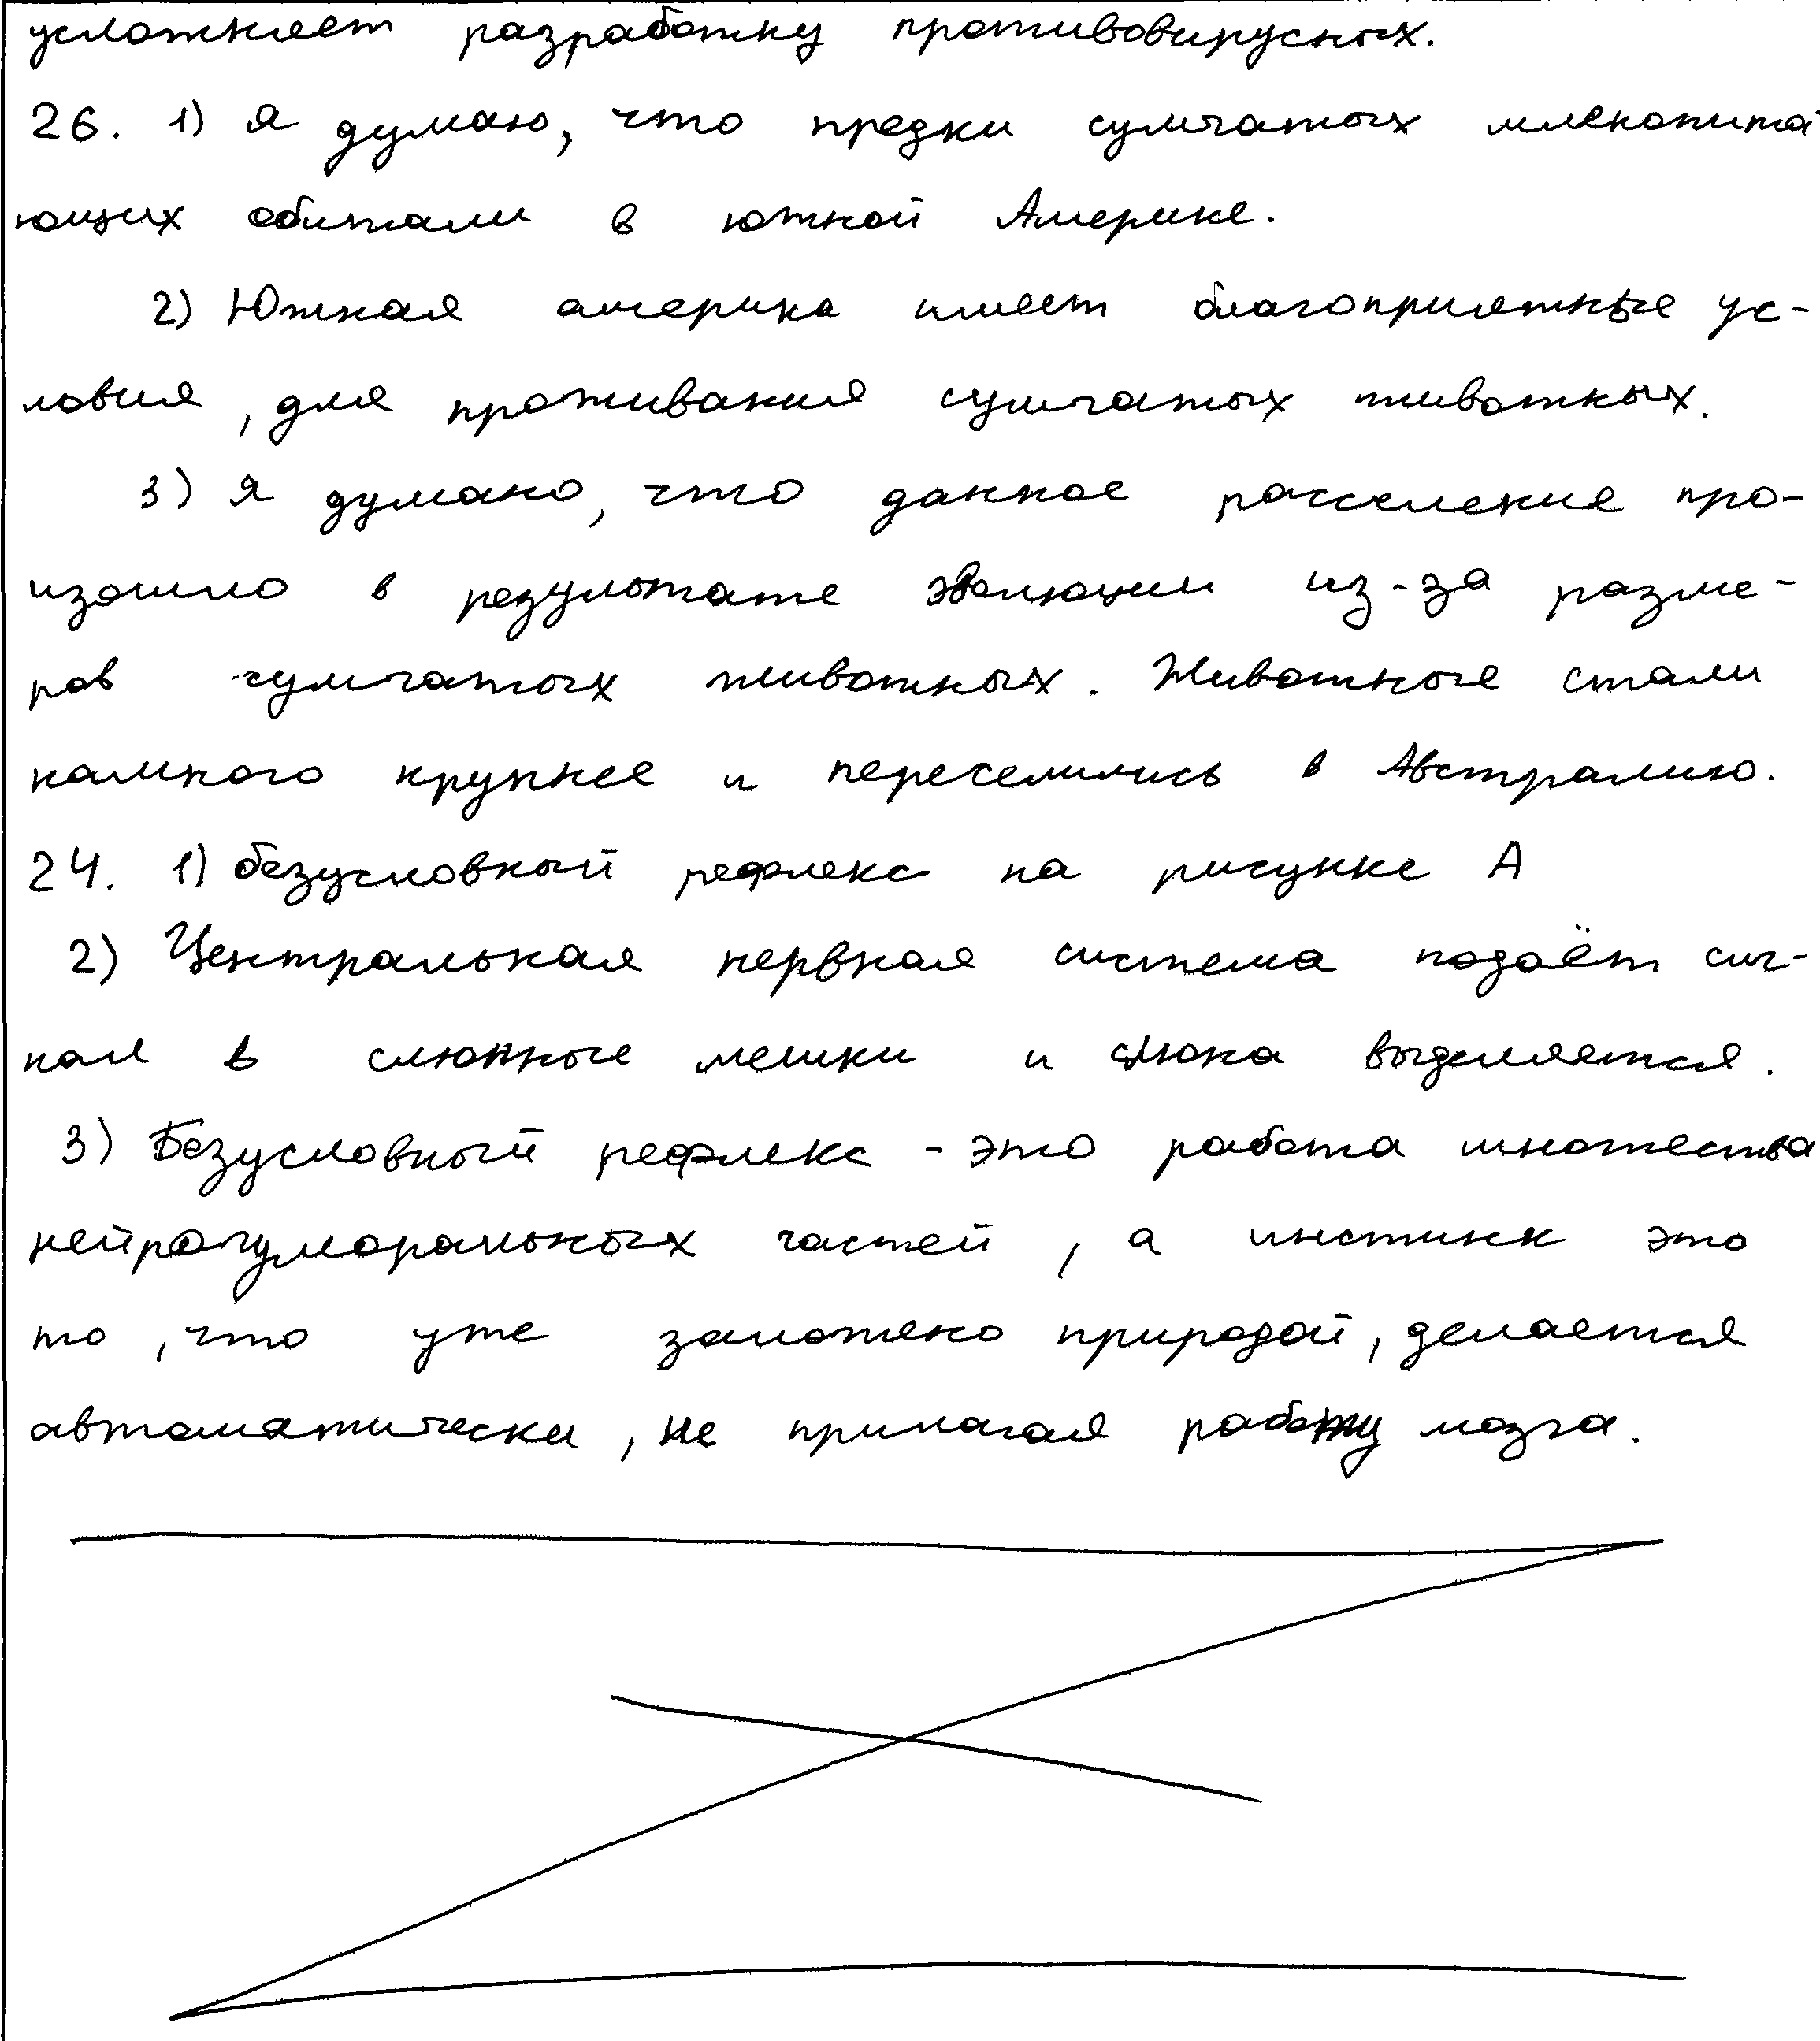 усложняет разработку противовирусных.
26. 1) я думаю, что предки сумчатых млекопита
ющих обитали в южной Америке.
2) Южная америка имеет благоприятные ус-
ловия, для проживания сумчатых животных.
3) я думаю, что данное расселение про-
изошло в результате эволюции из-за разме-
ров сумчатых животных. Животные стали
намного крупнее и переселились в Австралию.
24. 1) безусловный рефлекс на рисунке А
2) Центральная нервная система подаёт сиг-
нал в слюнные мешки и слюна выделяется.
3) Безусловный рефлекс - это работа множества
нейрогуморальных частей, а инстинк это
то, что уже заложено природой, делается
автоматически, не прилагая работу мозга.